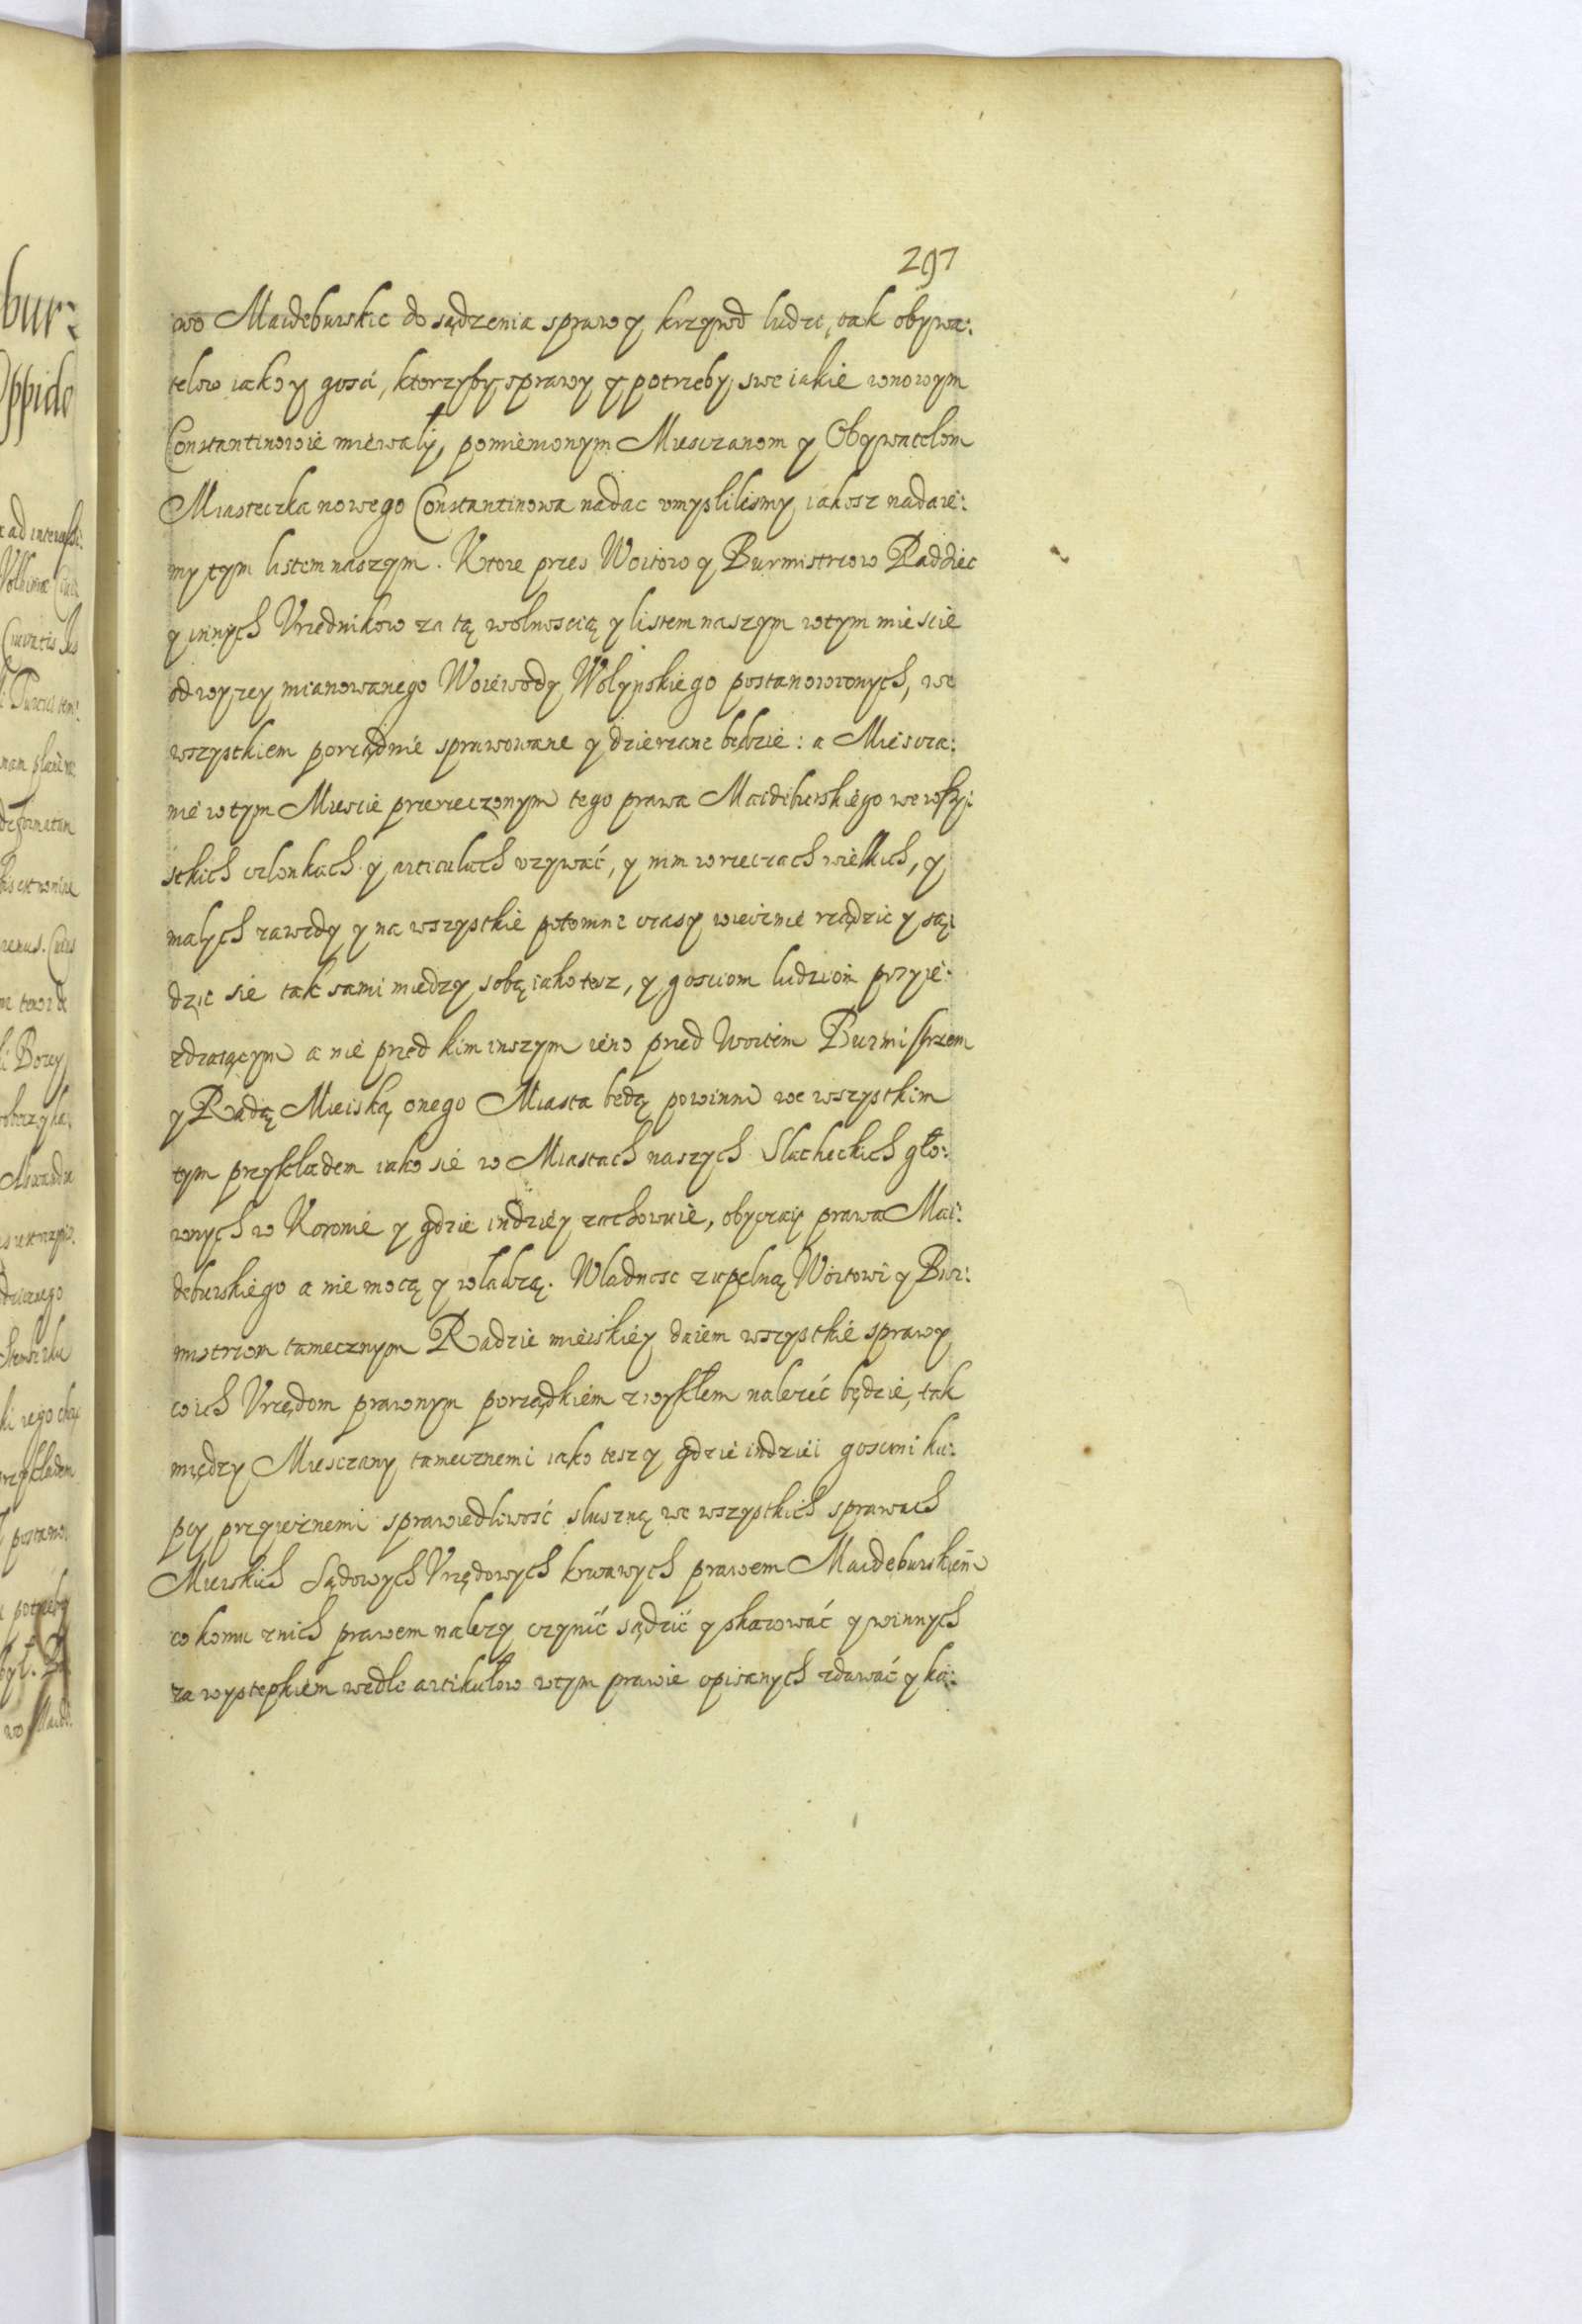 297
wo Maideburskie do sądzenia spraw y krzywd ludzi, tak obywa:
telow iako y gosci, ktorzyby sprawy y potrzeby swe iakie wnowym
Constantinowie miewali, pomienionym Miesczanom y Obywatelom
Miasteczka nowego Constantinowa nadac vmyslilismy iakosz nadaie:
my tym listem naszym. Ktore przes Woitow y Burmistrzow Raddziec
y innych Vrzednikow za tą wolnoscią y listem naszym wtym miescie
od wyzey mianowanego Woiewody Wolynskiego postanowionych, we
wszystkiem porządnie sprawowane y dzierzane będzie: a Miescza:
nie wtym Miescie przerzeczonym tego prawa Maideburskiego we wszy:
stkich czlonkach y articulach vzywać, y nim wrzeczach wielkich, y
malych zawzdy y na wszystkie potomne czasy wiecznie rządzic y są:
dzic sie tak sami miedzy sobą iako tesz, y gosciom ludziom przyie:
zdzaiącym a nie przed kim inszym ieno przed Woitem Burmistrzem
y Radą Mieiską onego Miasta będą powinni we wszystkim
tym przykładem iako sie w Miastach naszych Slacheckich gło:
wnych w Koronie y gdzie indziey zachowuie, obyczaiy prawa Mai:
deburskiego a nie mocą y władzą. Wladnosc zupelną Woitowi y Bur:
mistrzom tamecznym Radzie mieiskiey daiem wszystkie sprawy
co ich Vrzędom prawnym porządkiem zwykłem nalezeć będzie, tak
między Miesczany tamecznemi iako tesz y gdzie indziei goscmi ku:
pcy przyieznemi sprawiedliwość sluszną we wszystkich sprawach
Mieiskich Sądowych Vrzędowych krwawych prawem Maideburskiem
co komu znich prawem nalezy czynić sądzić y skazować y winnych
za wystepkiem wedle artikułow wtym prawie opisanych zdawać y ka: